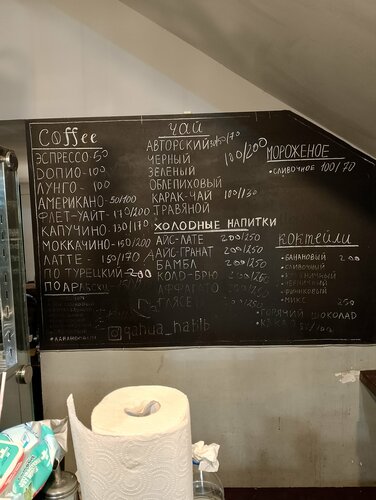 coffee
ЭСПРЕССО-50
ДОПИО-100
ЛУНГО-100
АМЕРИКАНО-50/100
ФЛЕТ-УАЙТ-170/200
КАПУЧИНО-130/170
МОККАЧИНО-150/200
ЛАТТЕ-150/170
ПО ТУРЕЦКИЙ-200
ЧАЙ
АВТОРСКИЙ
ЧЕРНЫЙ
ЗЕЛЕНЫЙ
100/200
ОБЛЕПИХОВЫЙ
КАРАК-ЧАЙ 100/130
ТРАВЯНОЙ
ХОЛОДНЫЕ НАПИТКИ
АЙС-ЛАТЕ 200/250
АЙС-ГРАНАТ 200/250
БАМБЛ 200/250
КОЛД-БРЮ 200/250
АФФАГАТО
ГЛЯСЕ 200/250
qahua_habib
МОРОЖЕНОЕ
•СЛИВОЧНОЕ 100/70
КОКТЕЙЛИ
-БАНАНОВЫЙ 200
-СЛИВОЧНЫЙ
-ЧЕРНИЧНЫЙ
-МИКС 250
-ГОРЯЧИЙ ШОКОЛАД